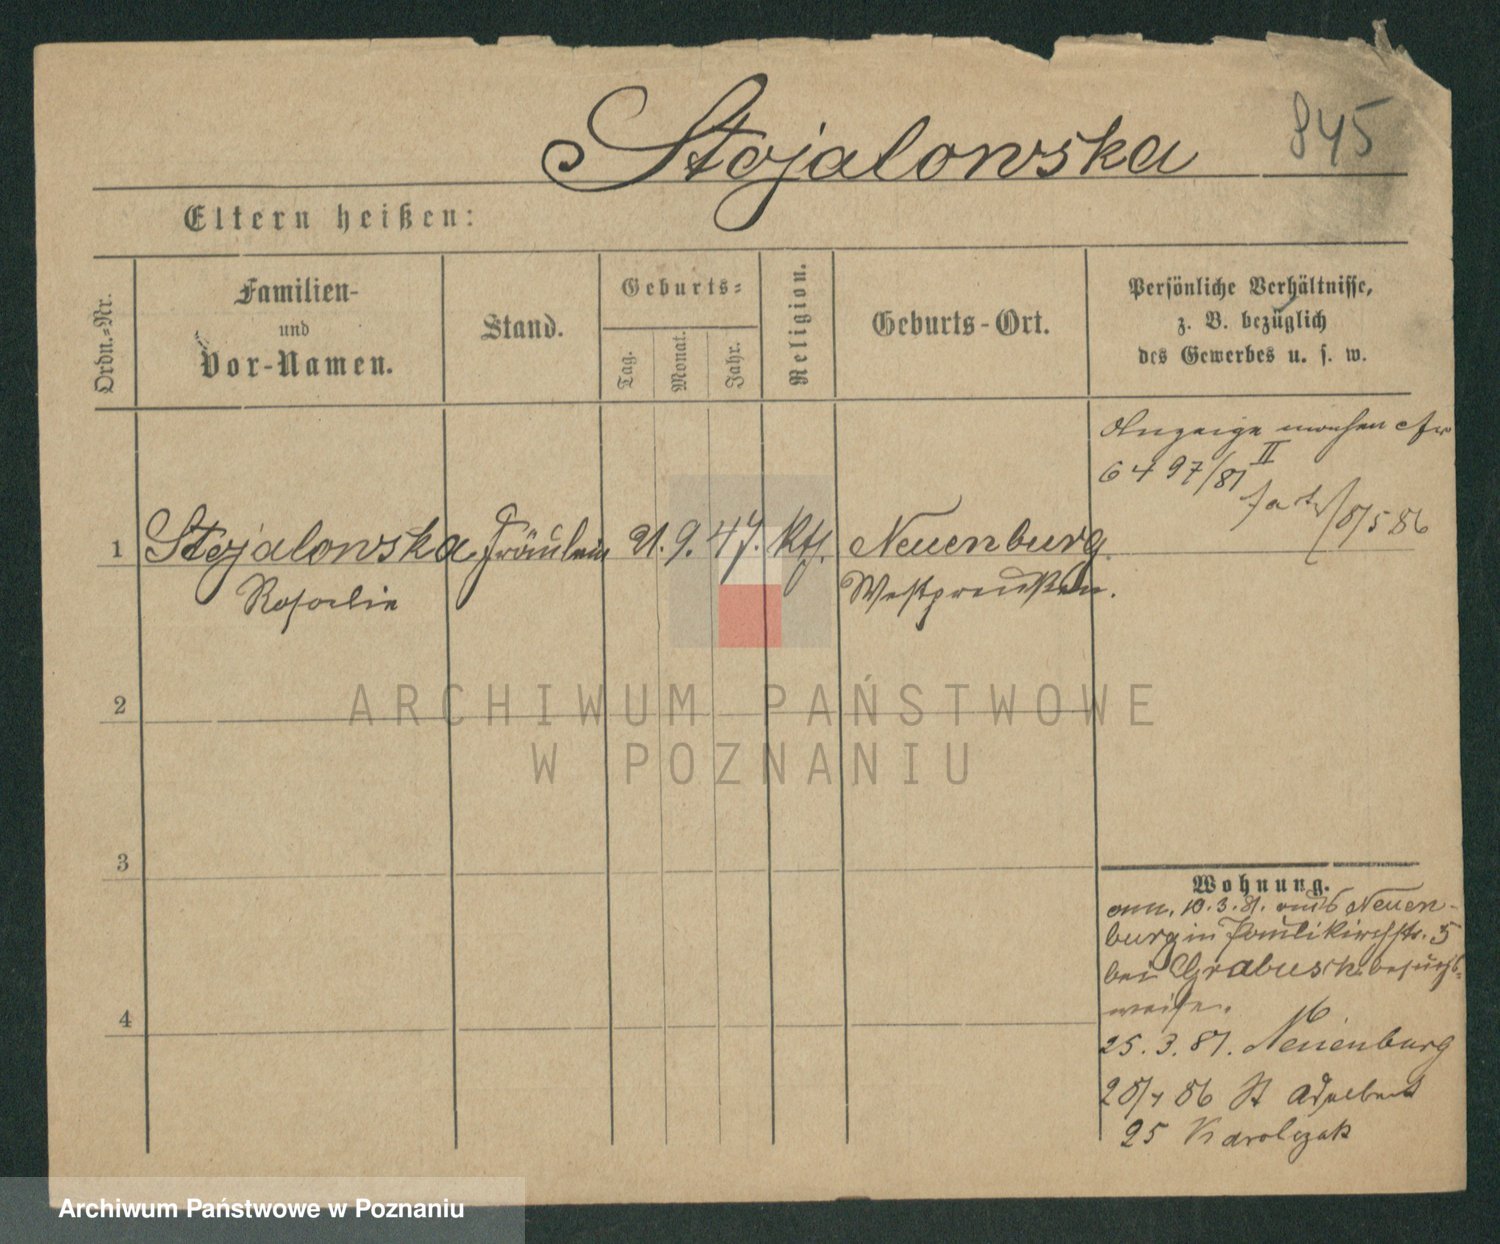 Stojalowska 845
Eltern heißen:
Ordn.-Nr.
Familien-
und
Vor-Namen.
Stand.
Geburts-
Tag.
Monat.
Jahr.
Religion.
Geburts-Ort.
Persönliche Verhältnisse,
z. B. bezüglich
des Gewerbes u. s. w.
Anzeige machen cfr
II
6497/81
/5 86
1 Stojalowska Fräulein 21. 9. 47. Kth. Neuenburg
Rosalie Westpreußen.
2
ARCHIWUM PAŃSTWOWE
W POZNANIU
3
Wohnung.
10.3.81. aus Neuen-
burg in Paulikirchstr. 5
bei Grabusch besuchs-
weise.
25.3.81. Neuenburg
86 St Adalbert
25 Karolczak
4
Archiwum Państwowe w Poznaniu